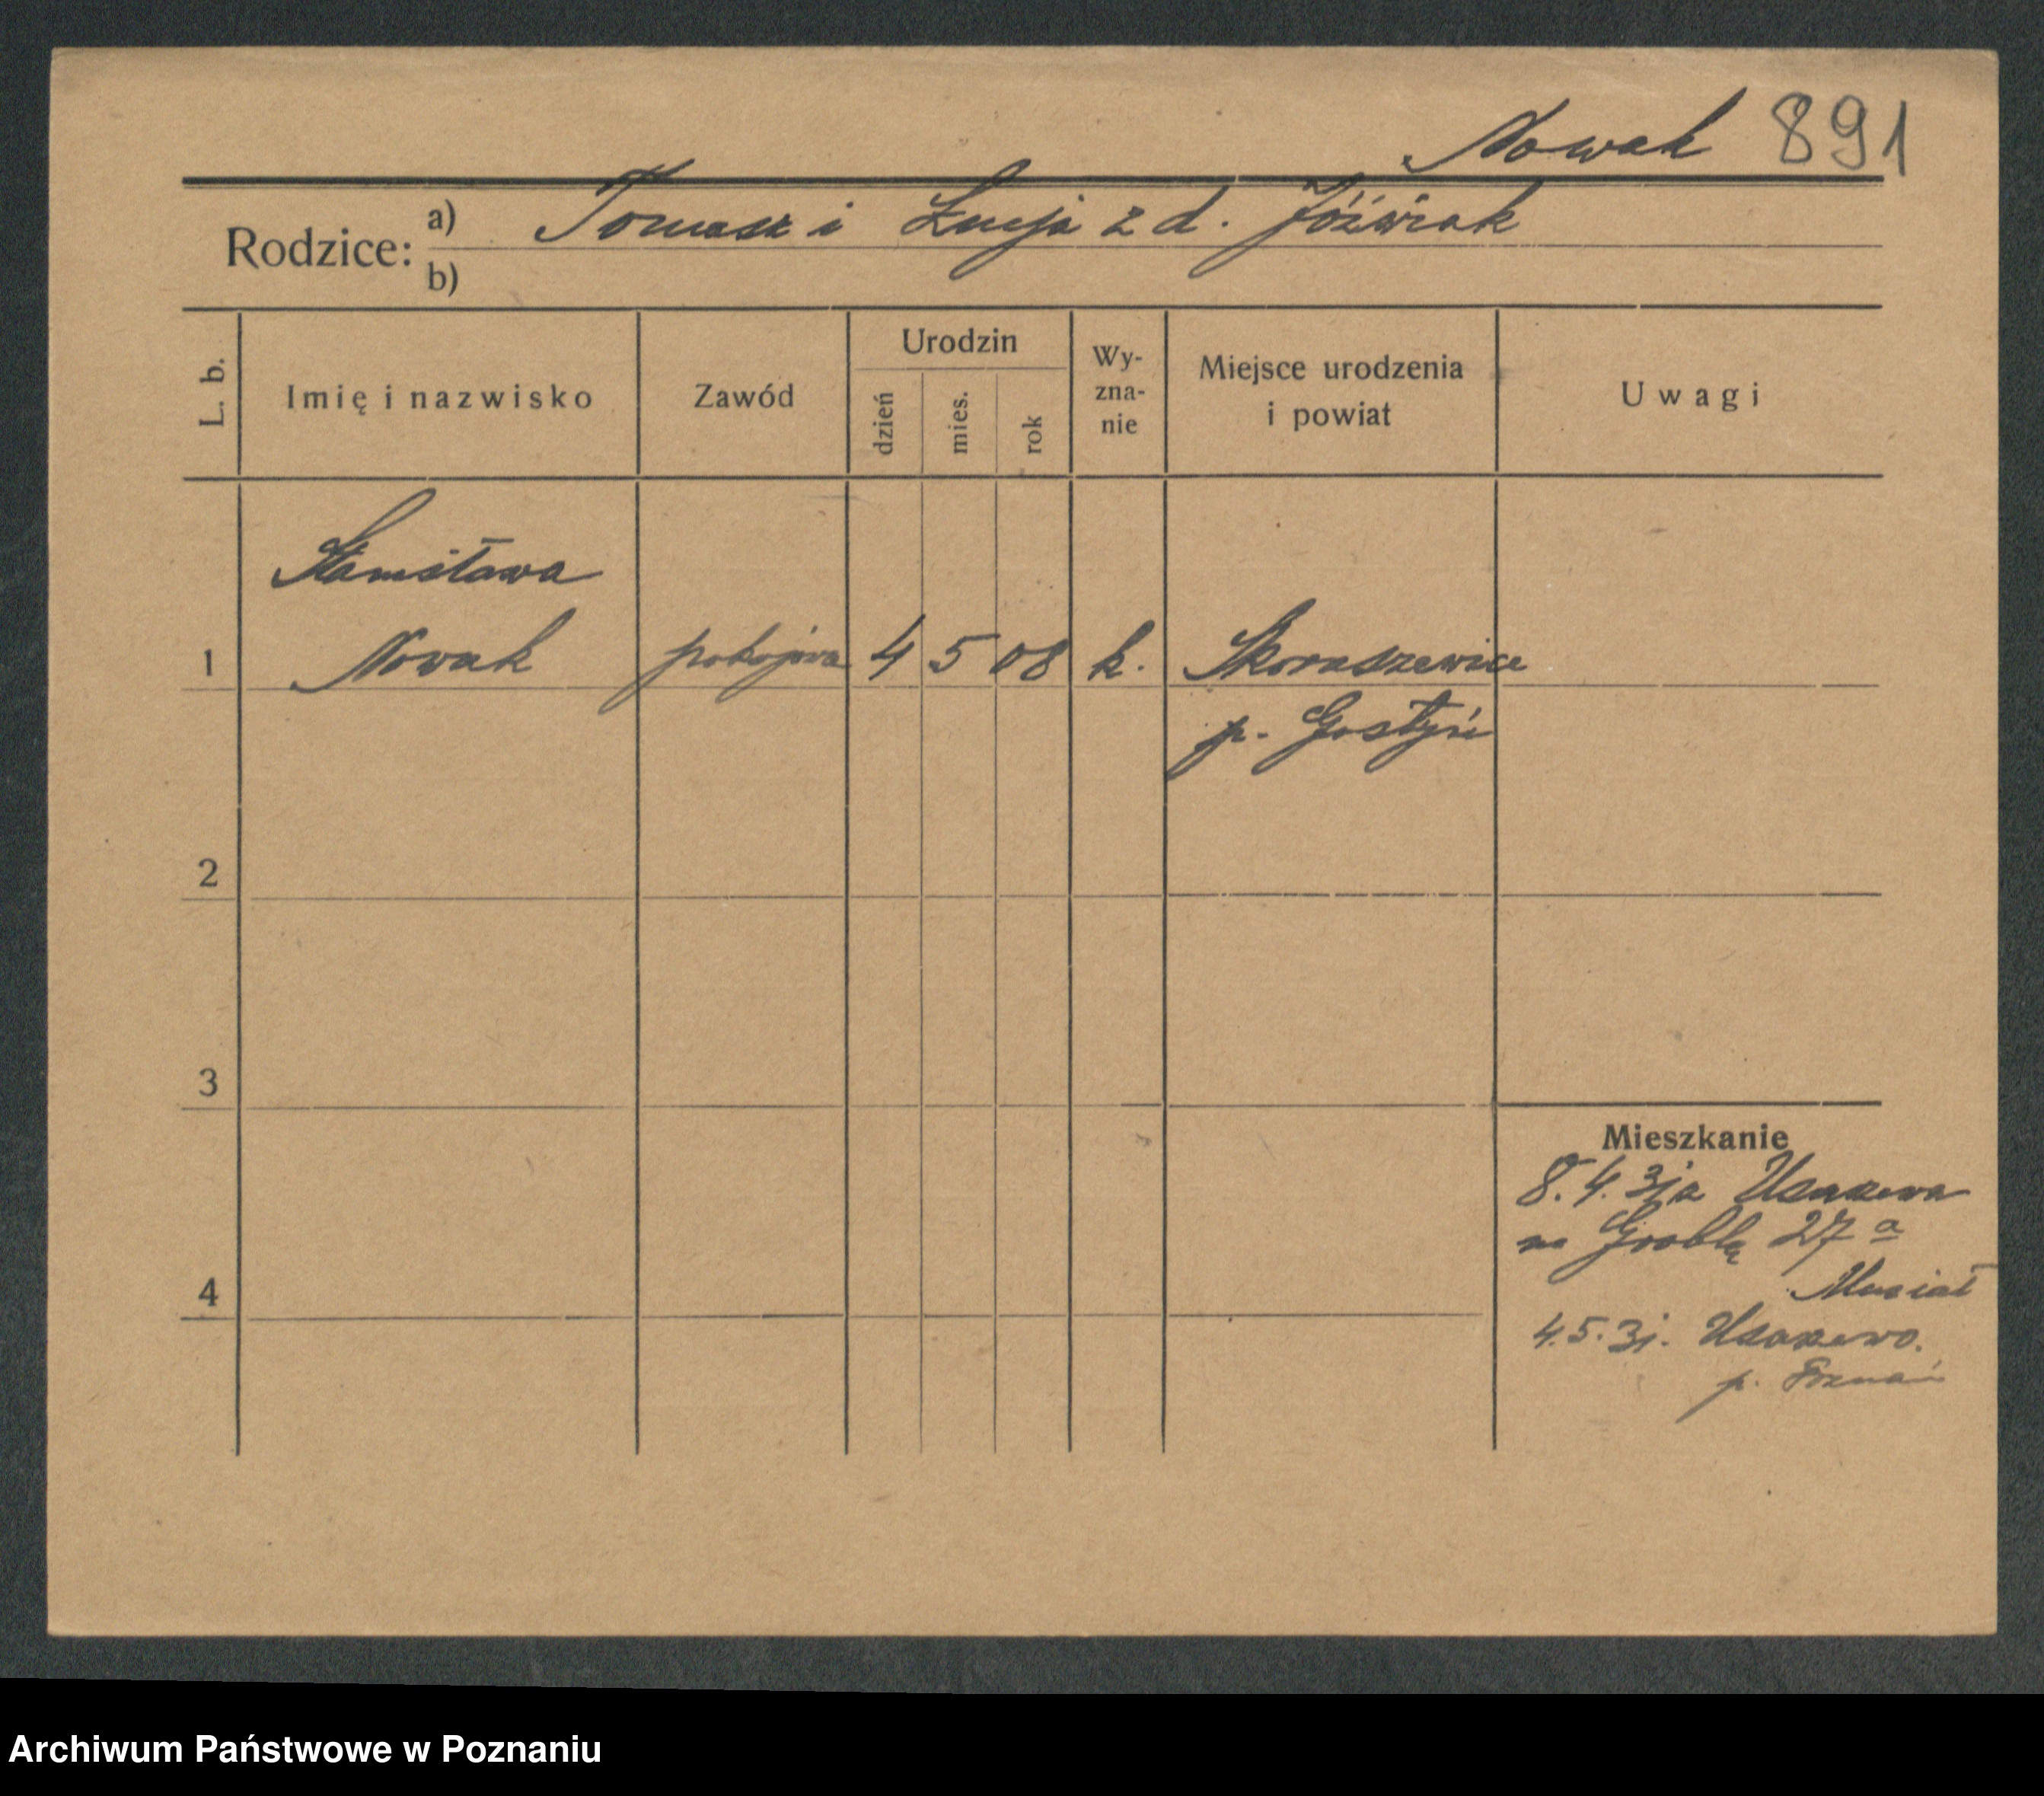 Nowak 891
Rodzice: a) Tomasz i Łucja z d. Jóźwiak
b)
L. b.
Imię i nazwisko
Zawód
Urodzin
dzień
mies.
rok
Wy-
zna-
nie
Miejsce urodzenia
i powiat
Uwagi
Stanisława
1 Nowak pokojowa 4 5 08 k. Skoraszewice
p. Gostyń
2
3
4
Mieszkanie
8.4.31 z
na Groblę 27 a
Musiał
4.5.31.
p. Poznań
Archiwum Państwowe w Poznaniu